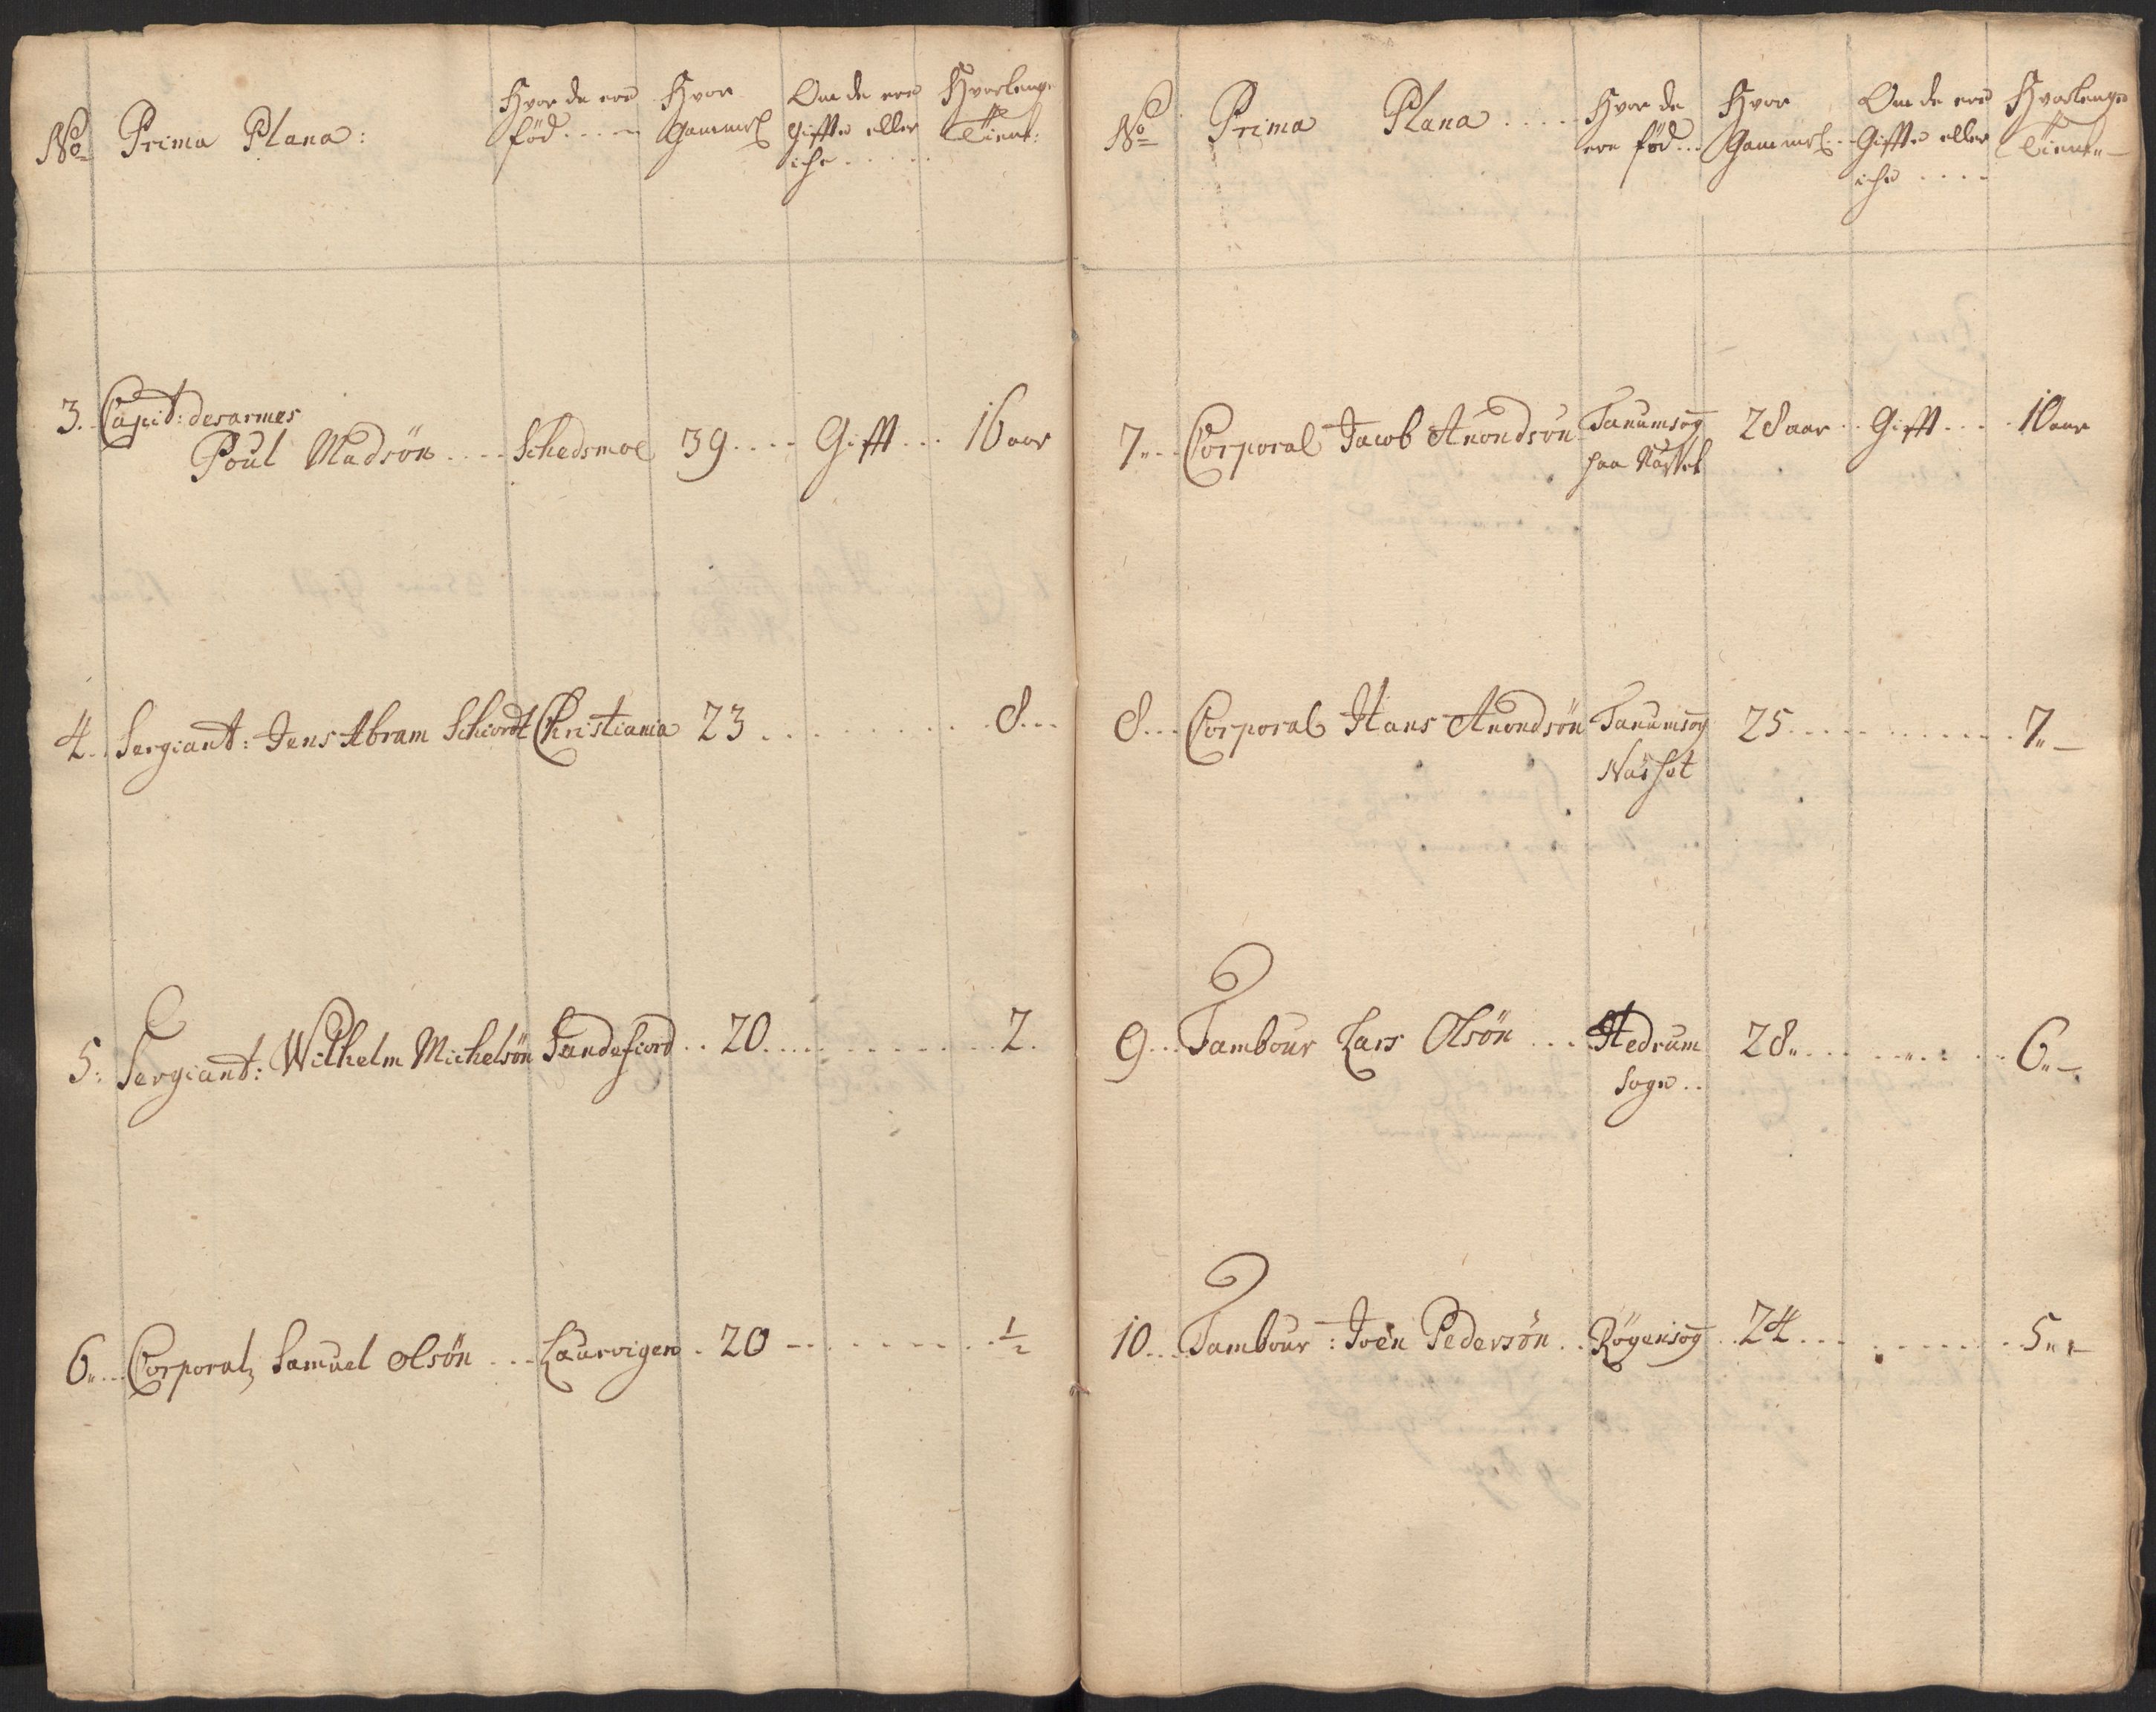 No Prima Plana: Hvor de ere Hvor Om de ere Hvorlenge
fød.... Gammel Giffte eller Tient:
iche.....
3.. Capit: desarmes
Poul Madsön.... Schedsmoe 39.... Gifft... 16 aar
4.. Sergiant: Jens Abram Schiordt Christiania 23........ 8...
5: Sergiant: Wilhelm Michelsön Sandefiord.. 20........ 2.
6... Corporal Samuel Olsön... Laurvigen. 20........ 1/2
No Prima Plana..... Hvor de Hvor Om de ere Hvorlenge
ere fød... Gammel.. Giffte eller Tient
iche....
7... Corporal Jacob Anondsön Tanumsog 28 aar.. Gifft.... 10 aar
paa
8... Corporal Hans Anondsön Tanumsog 25........ 7.. —
9... Tambour Lars Olsön... Hedrum 28........ 6.. —
Sogn..
10... Tambour: Joen Pedersön.. Røgensog.. 24........ 5..